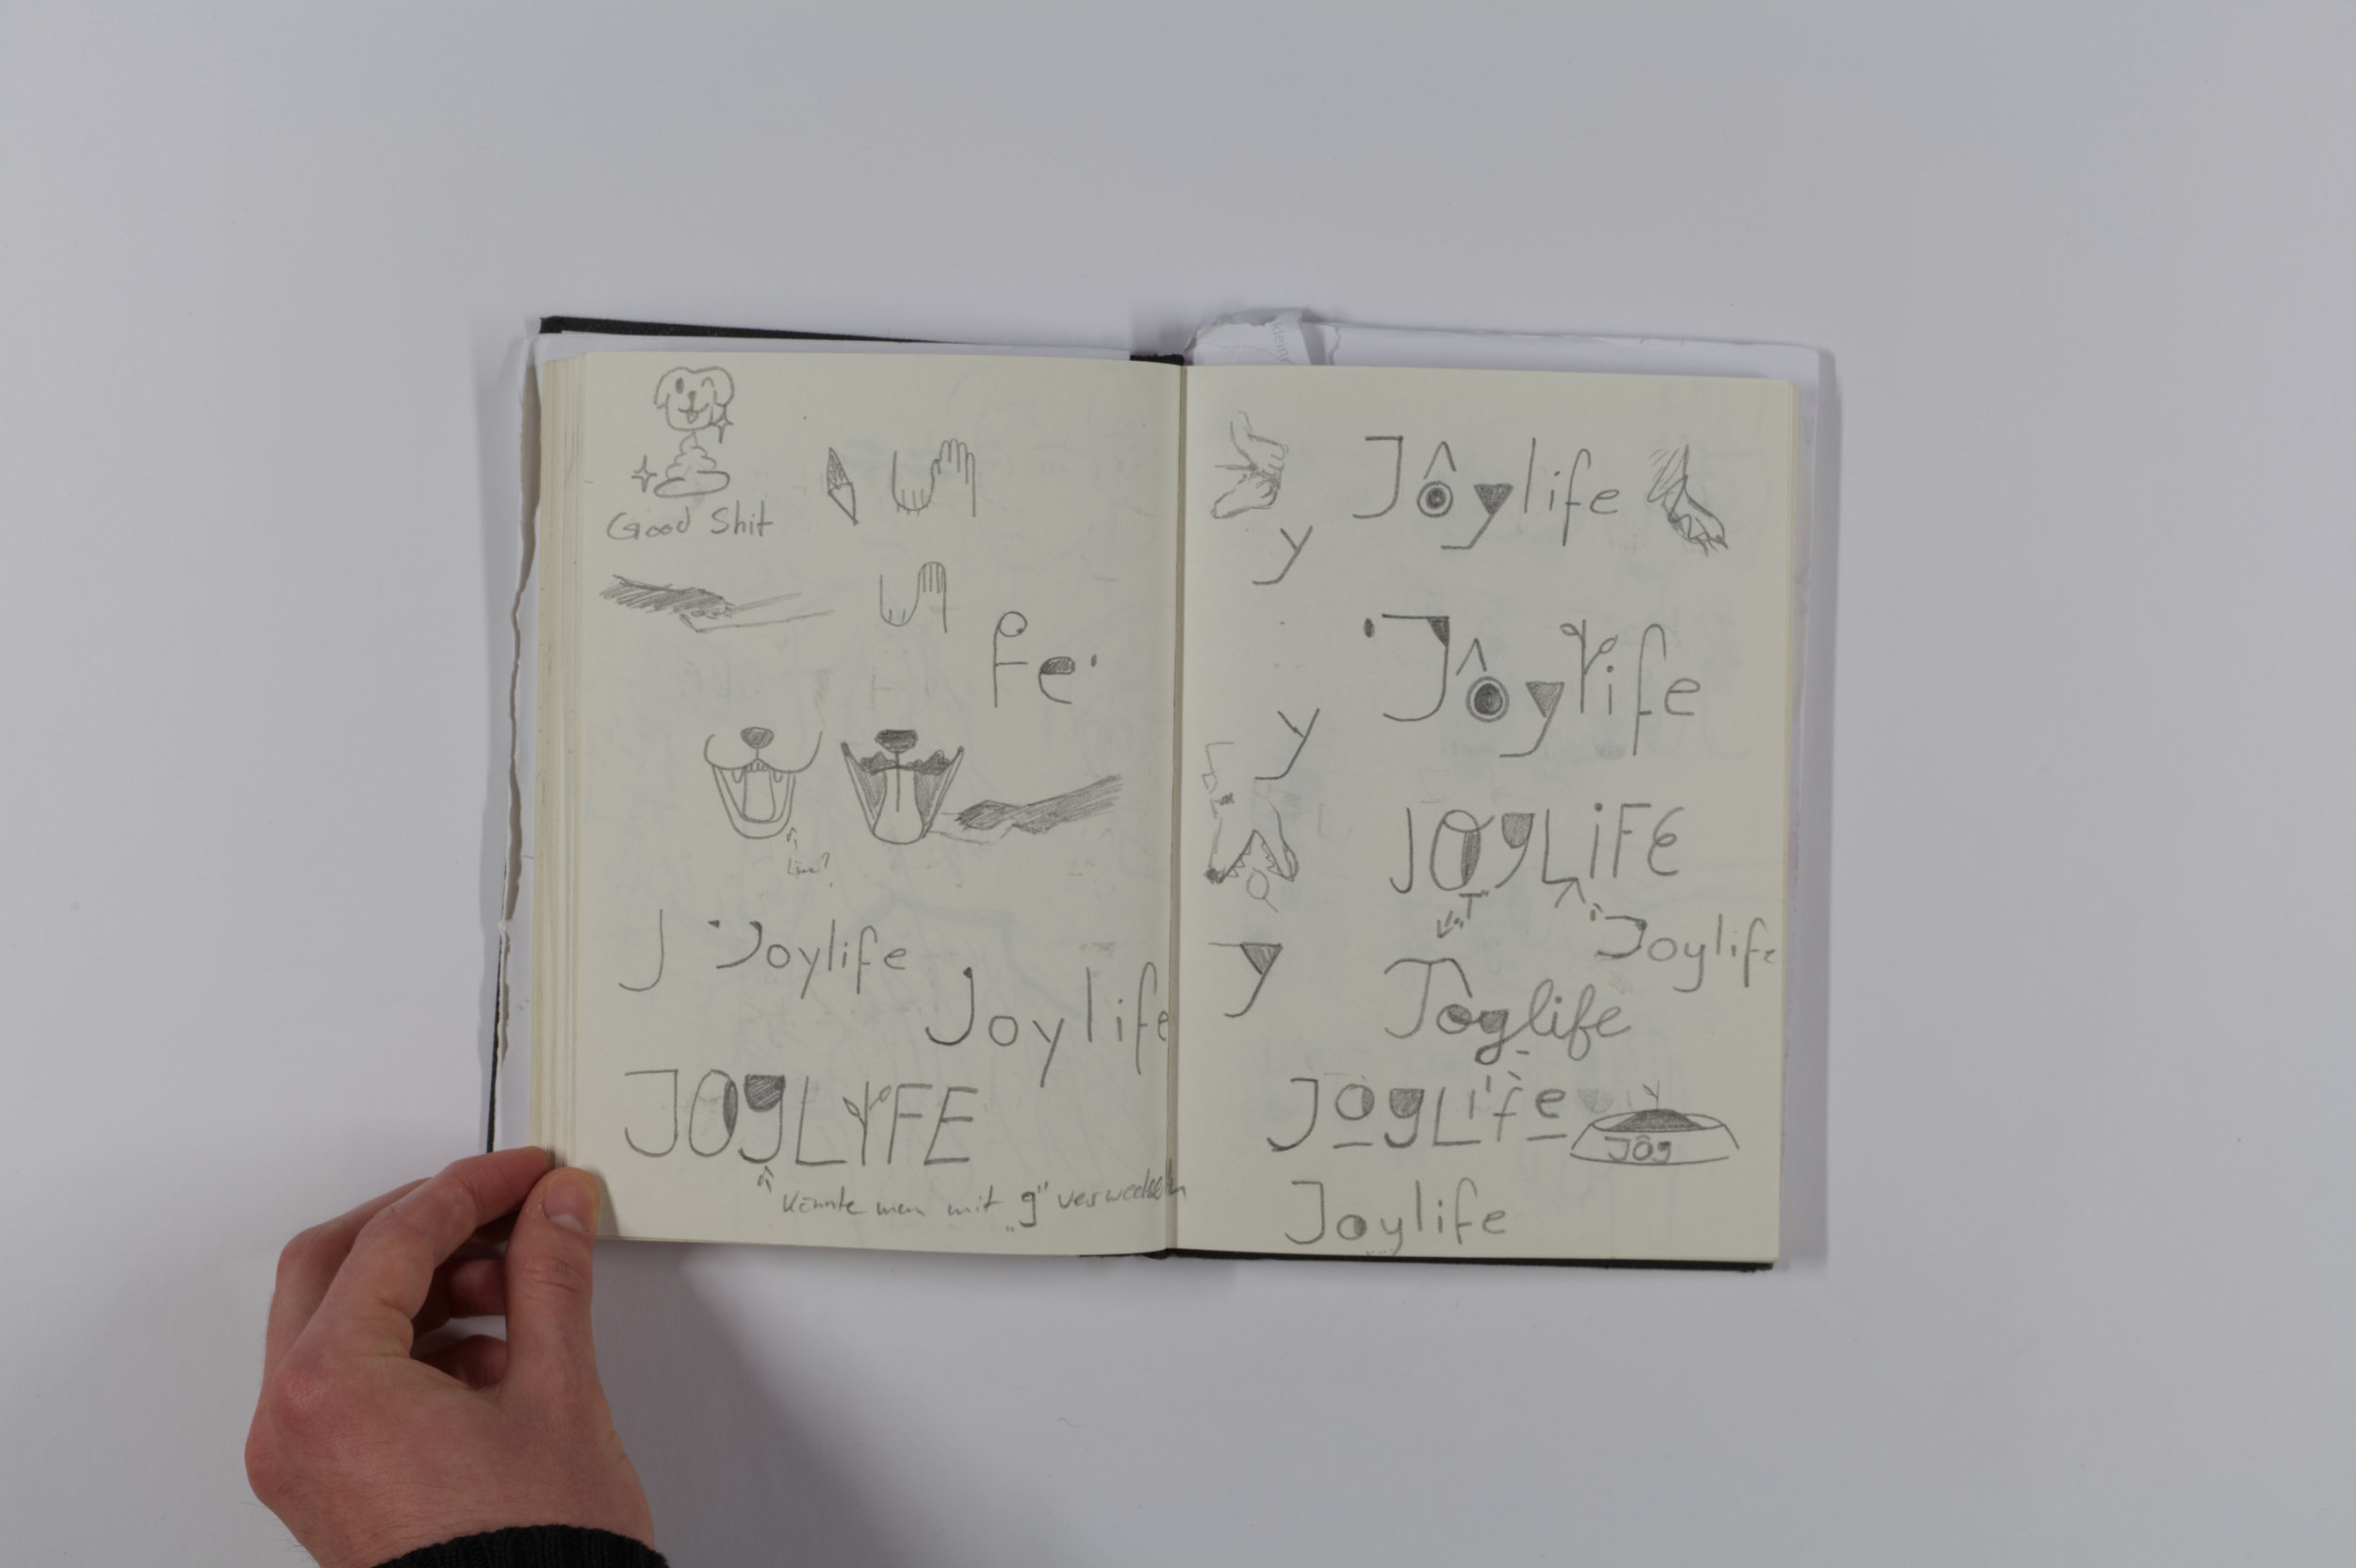 Good Shit
fe
J Joylife
Joylife
JOYLYFE
Könnte man mit „g" verwechseln
klein
Jôylife
y
Jôylife
y
JOYLiFE
„T"
Joylife
y
Joylife
JOYLife
JÔY
Joylife